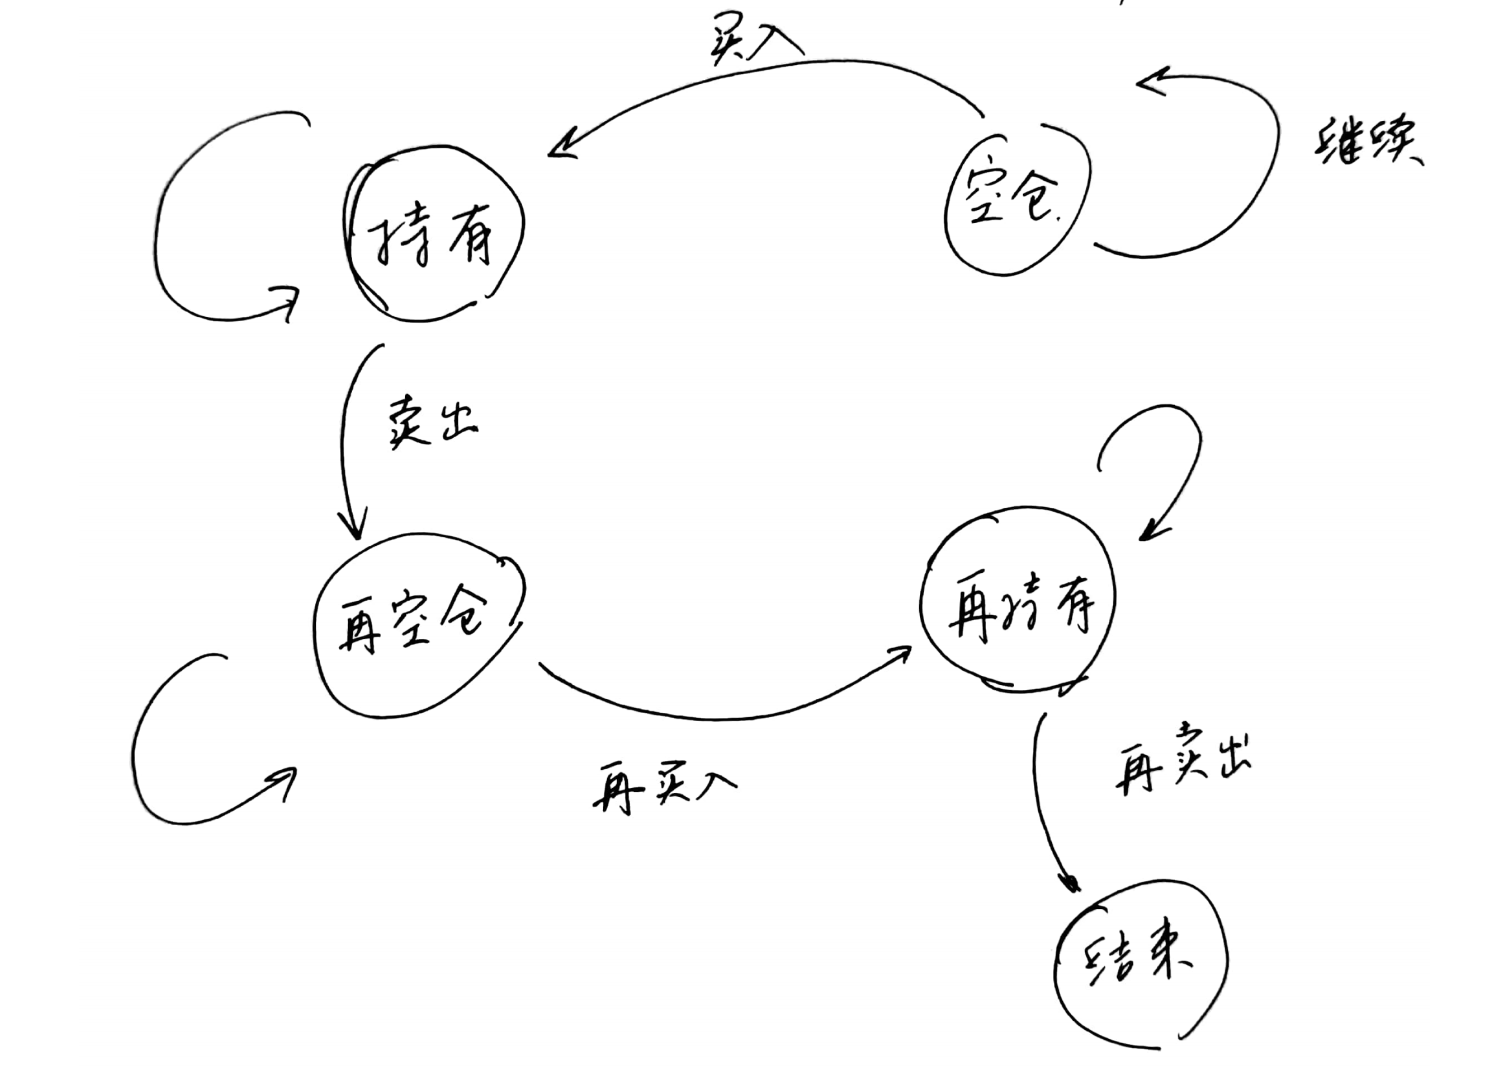 买入
继续
持有
空仓
卖出
再空仓
再持有
再买入
再卖出
结束